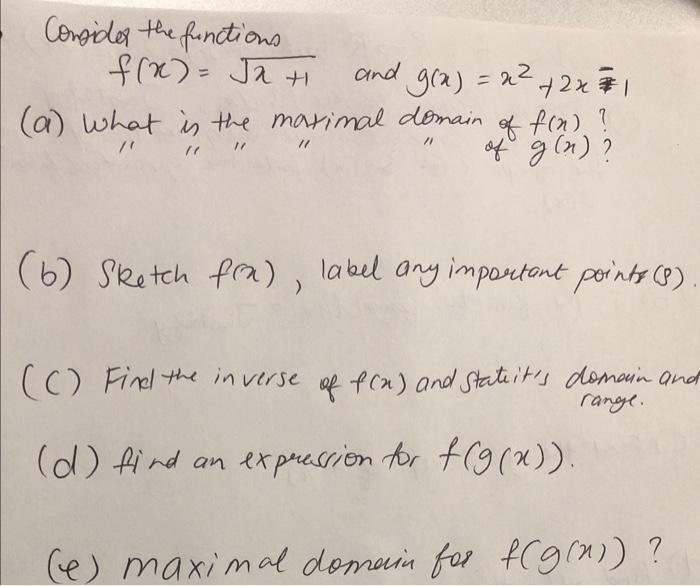 Consider the functions
f(x) = √x+1 and g(x) = x² + 2x - 1
(a) What is the maximal domain of f(x) ?
" " " " " of g(x) ?
(b) Sketch f(x), label any important points(s).
(c) Find the inverse of f(x) and state it's domain and
range.
(d) find an expression for f(g(x)).
(e) maximal domain for f(g(x)) ?